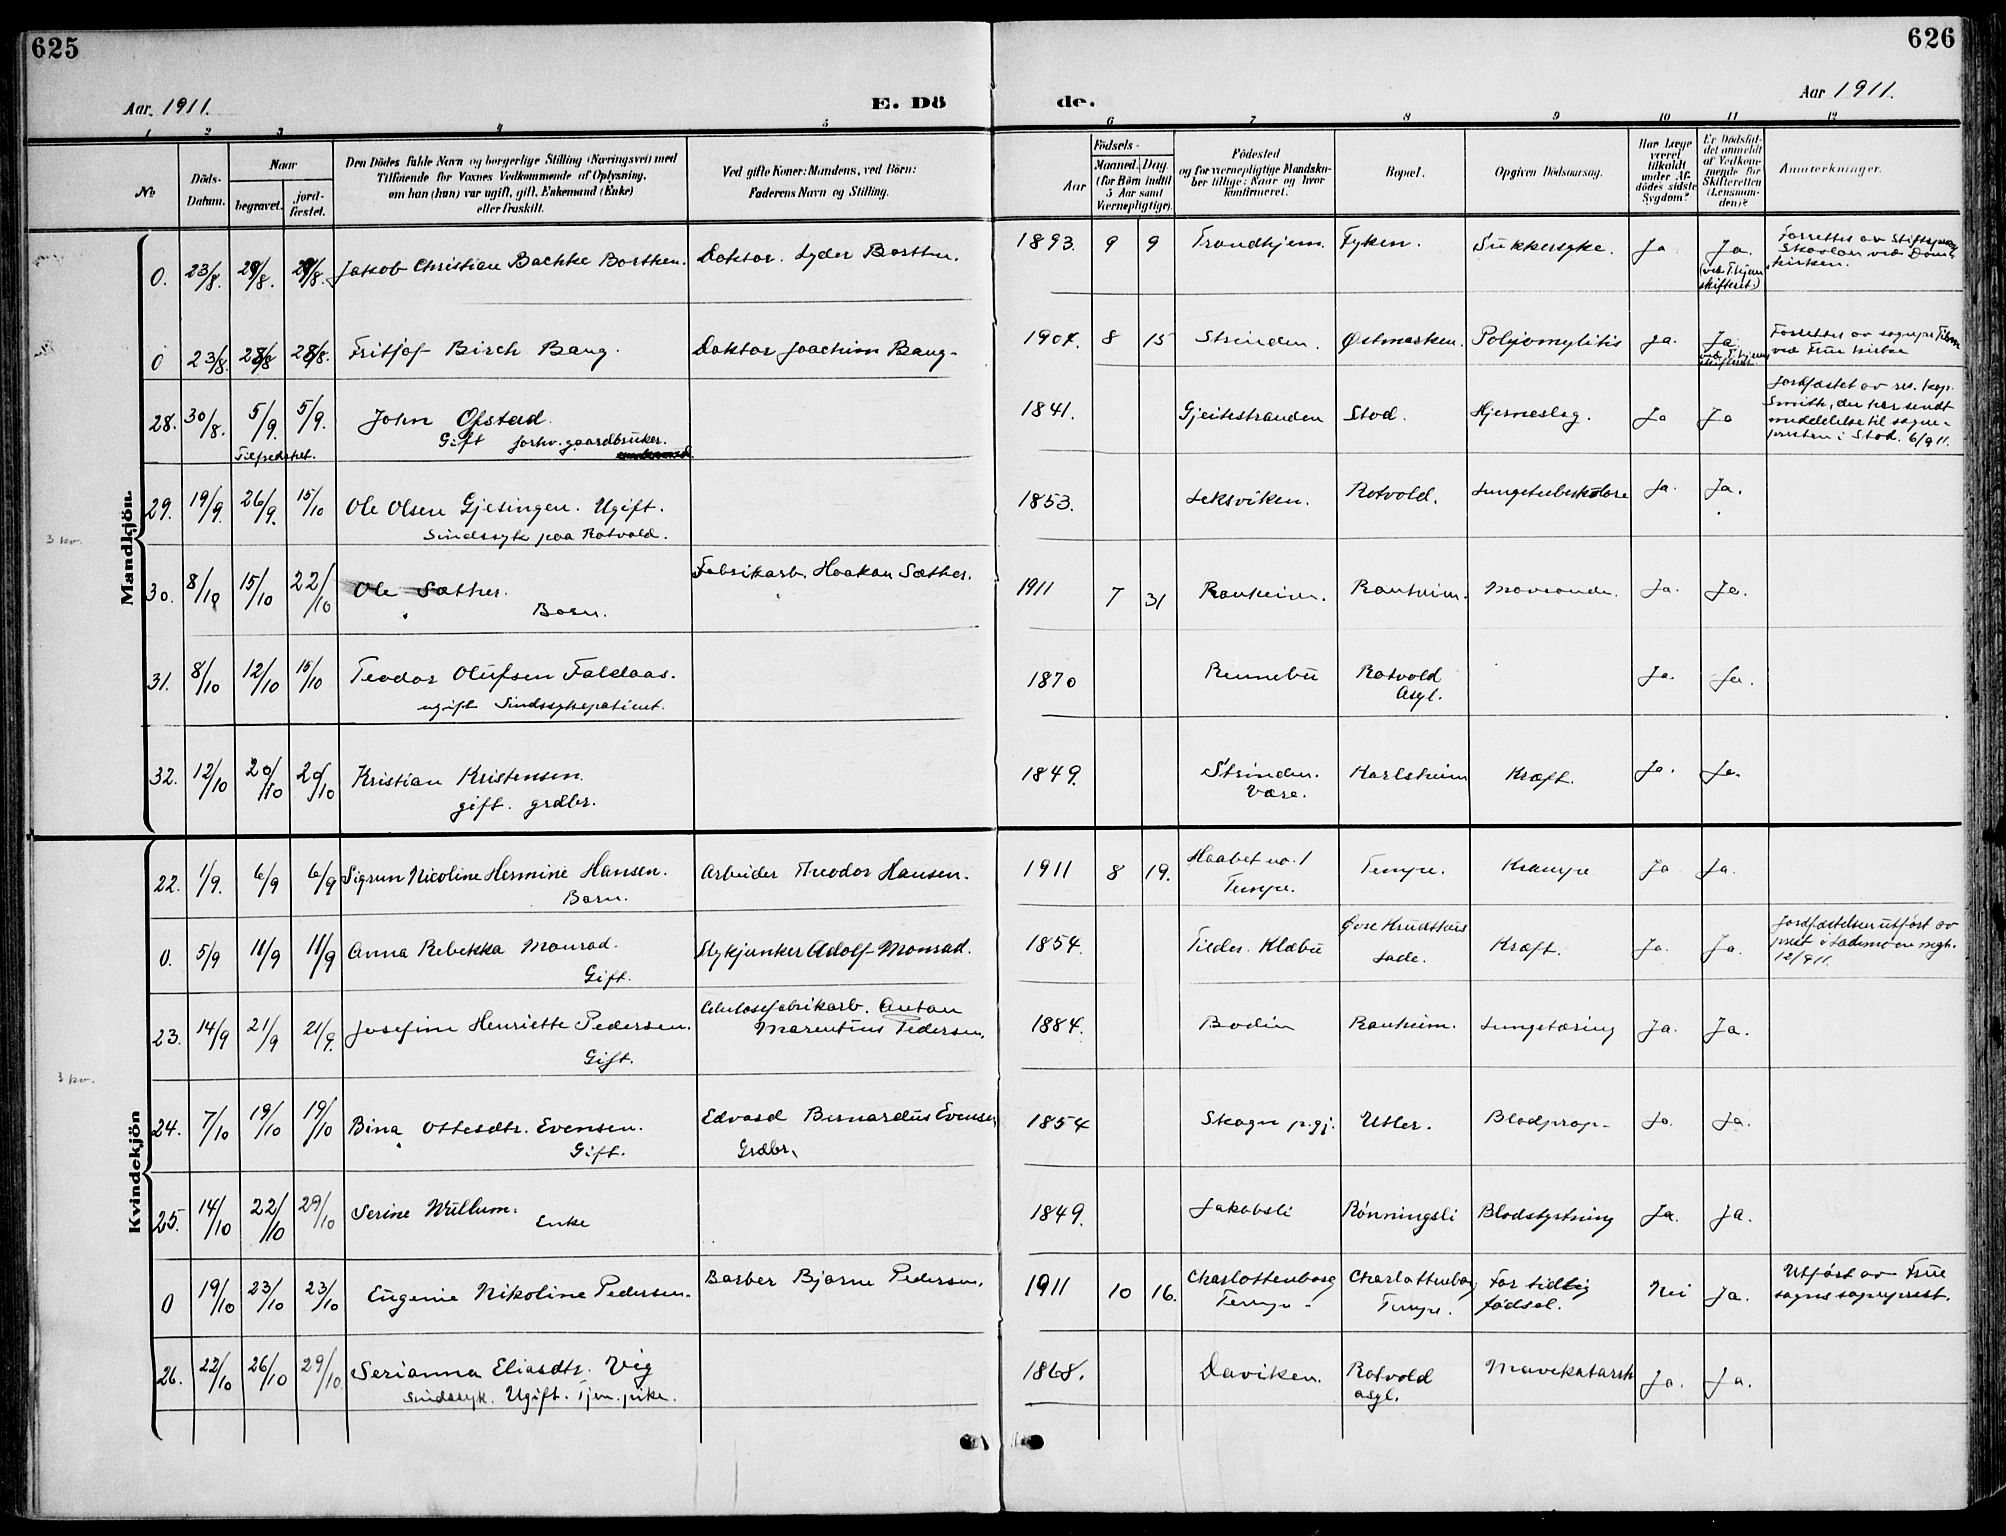 625
626
Aar. 1911.
E. Dö
de.
Aar 1911.
1 2 3 4 5 6 7 8 9 10 11 12
No
Döds-Datum.
Naar
begravet.
jord-fæstet.
Den Dödes fulde Navn og borgerlige Stilling (Næringsvei) med
Tilföiende for Voxnes Vedkommende af Oplysning,
om han (hun) var ugift, gift, Enkemand (Enke)
eller fraskilt.
Ved gifte Koner: Mandens, ved Börn:
Faderens Navn og Stilling.
Födsels-
Aar
Maaned. Dag
(for Börn indtil
5 Aar samt
Værnepligtige).
Födested
og for værnepligtige Mandska-
ber tillige: Naar og hvor
konfirmeret.
Bopæl.
Opgiven Dödsaarsag.
Har Læge
været
tilkaldt
under Af-
dödes sidste
Sygdom?
Er Dödsfal-
det anmeldt
af Vedkom-
mende for
Skifteretten
(Lensman-
den)?
Anmærkninger.
Mandkjön.
3 kv.
0. 23/8. 29/8. 29/8. Jakob Christian Bachke Borthen. Doktor. Lyder Borthen. 1893. 9 9 Trondhjem. Fyken. Sukkersyke. Ja Ja.
(ved Thjem
skifteret.)
Forrettet av Stiftsprov.
Skavlan ved Dom-
kirken.
0 23/8. 28/8 28/8. Fritjof Birch Bang. Doktor Joachim Bang. 1904. 8 15 Strinden. Østmarken. Polyomylitis ja. Ja.
ved Thjems
skifteret.
Forrettet av sognepr.
ved Frue kirke
28. 30/8. 5/9. 5/9. John Ofstad.
Gift forhv. gaardbruker.
1841. Gjeitestranden Stod. Hjerneslag. Ja Ja
Jordfæstet av res. kap.
Smith, der har sendt
meddelelse til sogne-
presten i Stod. 6/9 11.
Tilfredshet.
29. 19/9. 26/9. 15/10 Ole Olsen Gjesingen. Ugift.
Sindssyk paa Rotvold.
1853. Leksviken. Rotvold. Lungetuberkulose Ja. Ja.
30. 8/10 15/10 22/10 Ole Sæther.
Barn.
Fabrikarb. Haakon Sæther. 1911 7 31 Ranheim. Ranheim. Maveonde. Ja. Ja.
31. 8/10 12/10 15/10 Teodor Olufsen Faldaas.
ugift Sindssykepatient.
1870 Rennebu Rotvold
Asyl.
Ja. Ja.
32. 12/10 20/10 20/10 Kristian Kristensen.
gift. grdbr.
1849. Strinden.
Være.
Karlsheim Kræft. Ja. Ja.
Kvindekjön
3 kv.
22. 1/9. 6/9 6/9 Sigrun Nicoline Hermine Hansen.
Barn.
Arbeider Theodor Hansen. 1911 8 19. Haabet no. 1
Tempe.
Tempe. Krampe Ja Ja.
0. 5/9 11/9 11/9 Anna Rebekka Monrad.
Gift.
Slykjunker Adolf Monrad. 1854. Tilder. Klæbu Øvre Krudthus
Lade.
Kræft. Ja. Ja.
Jordfæstelsen utført av
prest i Lademoen mgh.
12/9 11.
23. 14/9 21/9 21/9. Josefine Henriette Pedersen.
Gift.
Celulosefabrikarb. Anton
Marentius Pedersen.
1884. Bodin Ranheim. Lungetæring Ja. Ja.
24. 7/10 19/10 19/10 Bina Ottesdtr. Evensen.
Gift.
Edvard Bernardus Evensen
Grdbr.
1854 Skogn p.gj. Utler. Blodprop. Ja. Ja.
25. 14/10 22/10 29/10 Serine Wullum.
Enke
1849. Jakobsli Rønningsli Blodstyrtning Ja. Ja.
0 19/10 23/10 23/10 Eugenie Nikoline Pedersen. Barber Bjarne Pedersen. 1911 10 16. Charlottenborg
Tempe.
Charlottenborg
Tempe.
For tidlig
fødsel.
Nei Ja.
Utført av Frue
sogns sogneprest.
26. 22/10 26/10 29/10. Serianna Eliasdtr. Vig
Sindssyk. Ugift. Tjen. pike.
1868. Daviken. Rotvold
asyl.
Mavekatarrh Ja. Ja.